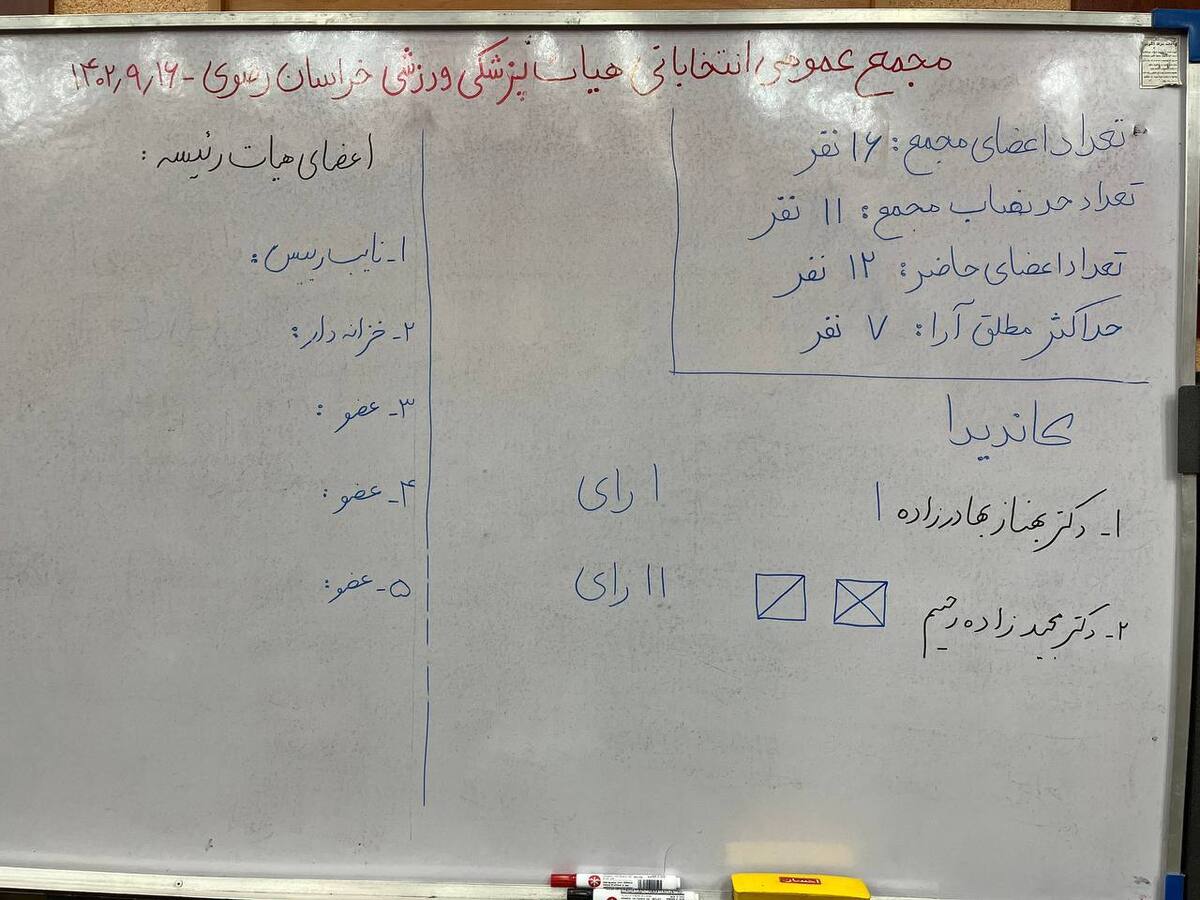 مجمع عمومی انتخاباتی هیات پزشکی ورزشی خراسان رضوی - ۱۴۰۲٫۹٫۱۶
تعداد اعضای مجمع: ۱۶ نفر
تعداد حد نصاب مجمع: ۱۱ نفر
تعداد اعضای حاضر: ۱۲ نفر
حداکثر مطلق آرا: ۷ نفر
کاندیدا
۱- دکتر بهناز بهادرزاده ۱ ۱ رای
۲- دکتر مجید زاده رحیم ۱۱ رای
اعضای هیات رئیسه:
۱- نایب رییس:
۲- خزانه دار:
۳- عضو:
۴- عضو:
۵- عضو: